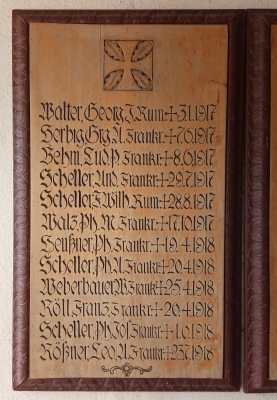 Walter, Georg J. Rum. † 3.1.1917
Herbig, Grg. A. Frankr. † 7.6.1917
Hehm, Lud. P. Frankr. † 8.6.1917
Scheller, And. Frankr. † 29.7.1917
Scheller, F. Wilh. Rum. † 28.8.1917
Walz, Ph. M. Frankr. † 17.10.1917
Heußner, Ph. Frankr. † 19.4.1918
Scheller, Ph. A. Frankr. † 20.4.1918
Weberbauer, W. Frankr. † 25.4.1918
Röll, Franz, Frankr. † 20.4.1918
Scheller, Ph. Jos. Frankr. † 1.6.1918
Rößner, Leo, A. Frankr. † 23.7.1918